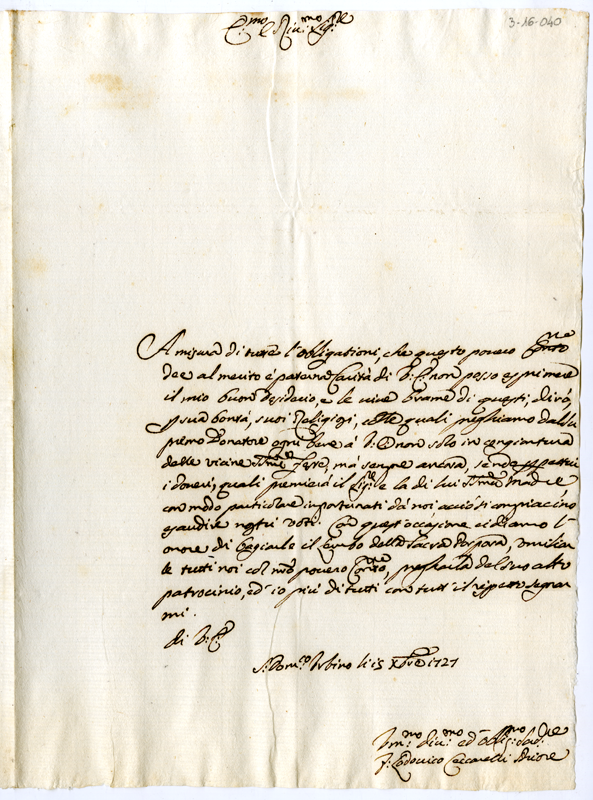 3-16-040
E.mo e R.mo Sig.re
A misura di tutte l'obligationi, che questo povero Con.to
dee al merito e paterna Carità di V. E. non posso esprimere
il mio buon desiderio, e le vive brame di questi, dirò,
p sua bontà, suoi Religiosi, colle quali preghiamo dal Su
premo Donatore ogni bene à V. E. non solo in congiuntura
delle vicine Feste, mà sempre ancora, se ne
i doveri, quali premierà il e la di lui Madre
con modo particolare importunati dà noi acciò si compiaccino
esaudire nostri voti. Con quest'occasione ci diamo l'
onore di baciarle il Lembo della Sacra Porpora, umilian
le tutti noi col povero Con.to, pregharla del suo alto
patrocinio, ed io più di tutti con tutt'il rispetto segnar
mi.
di V. E.
S. Dom.co Urbino li 15 Xbre 1727
Um.mo Div.mo ed Oblig.mo
F. Lodovico Ceccarelli Priore